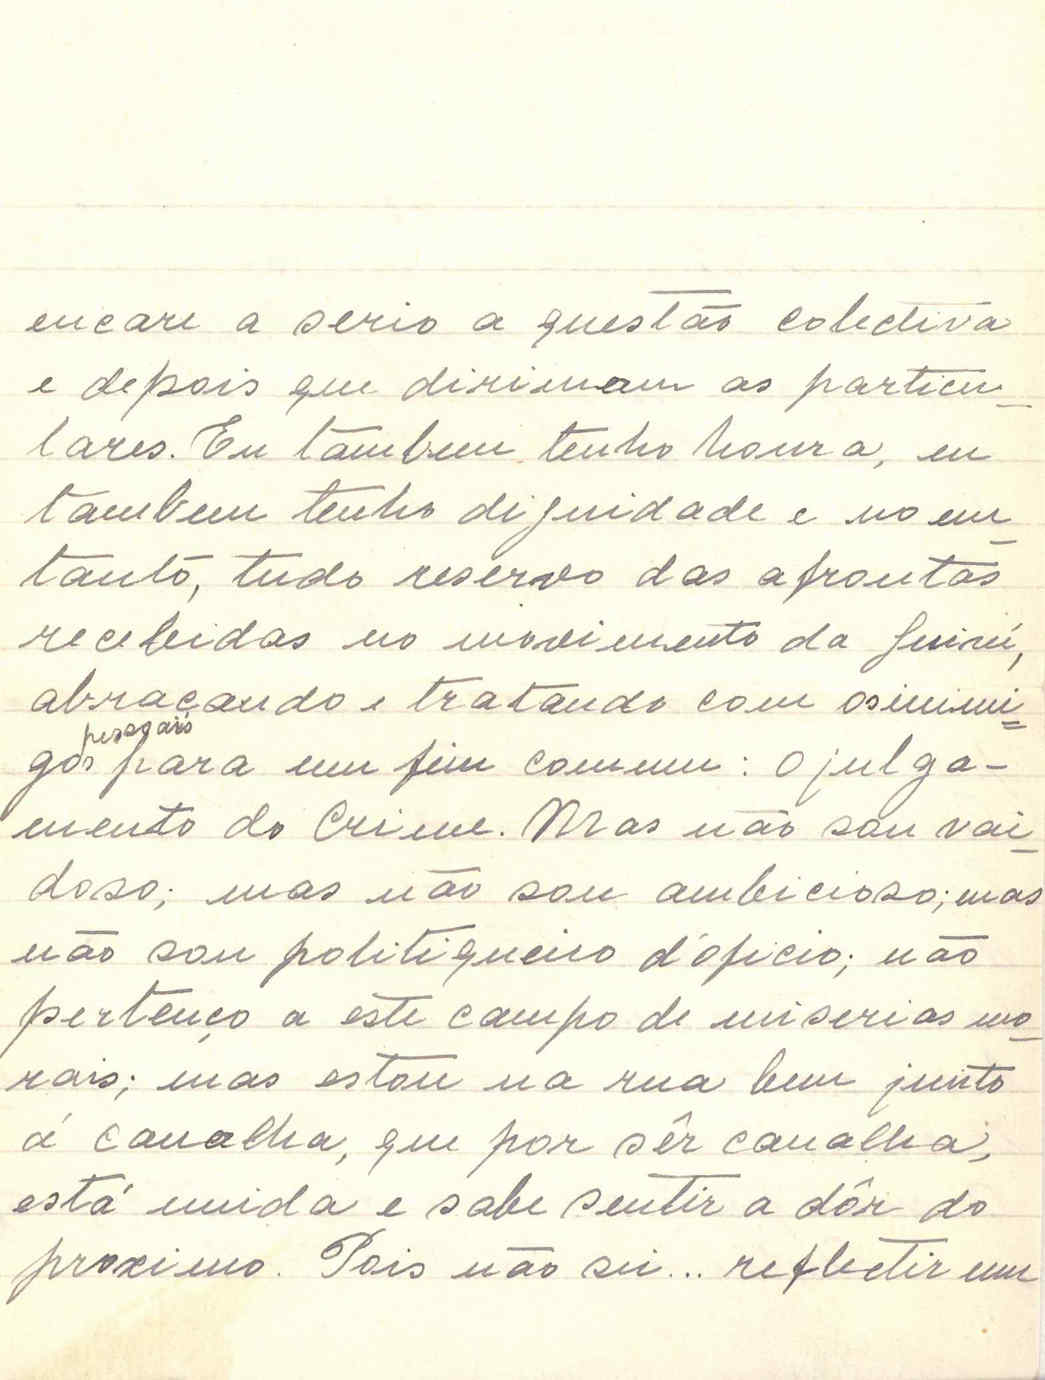 encare a serio a questão colectiva
e depois que dirimam as particu_
lares. Eu tambem tenho honra, eu
tambem tenho dignidade e no em_
tanto, tudo reservo das afrontas
recebidas no movimento da Guiné,
abraçando e tratando com os inimi=
gos pessoais para um fim comum: o julga-
mento do Crime. Mas não sou vai_
doso; mas não sou ambicioso; mas
não sou politiqueiro d'oficio; não
pertenço a este campo de miserias mo_
rais; mas estou na rua bem junto
á canalha, que por sêr canalha,
está unida e sabe sentir a dôr do
proximo. Pois não sei... reflectir um